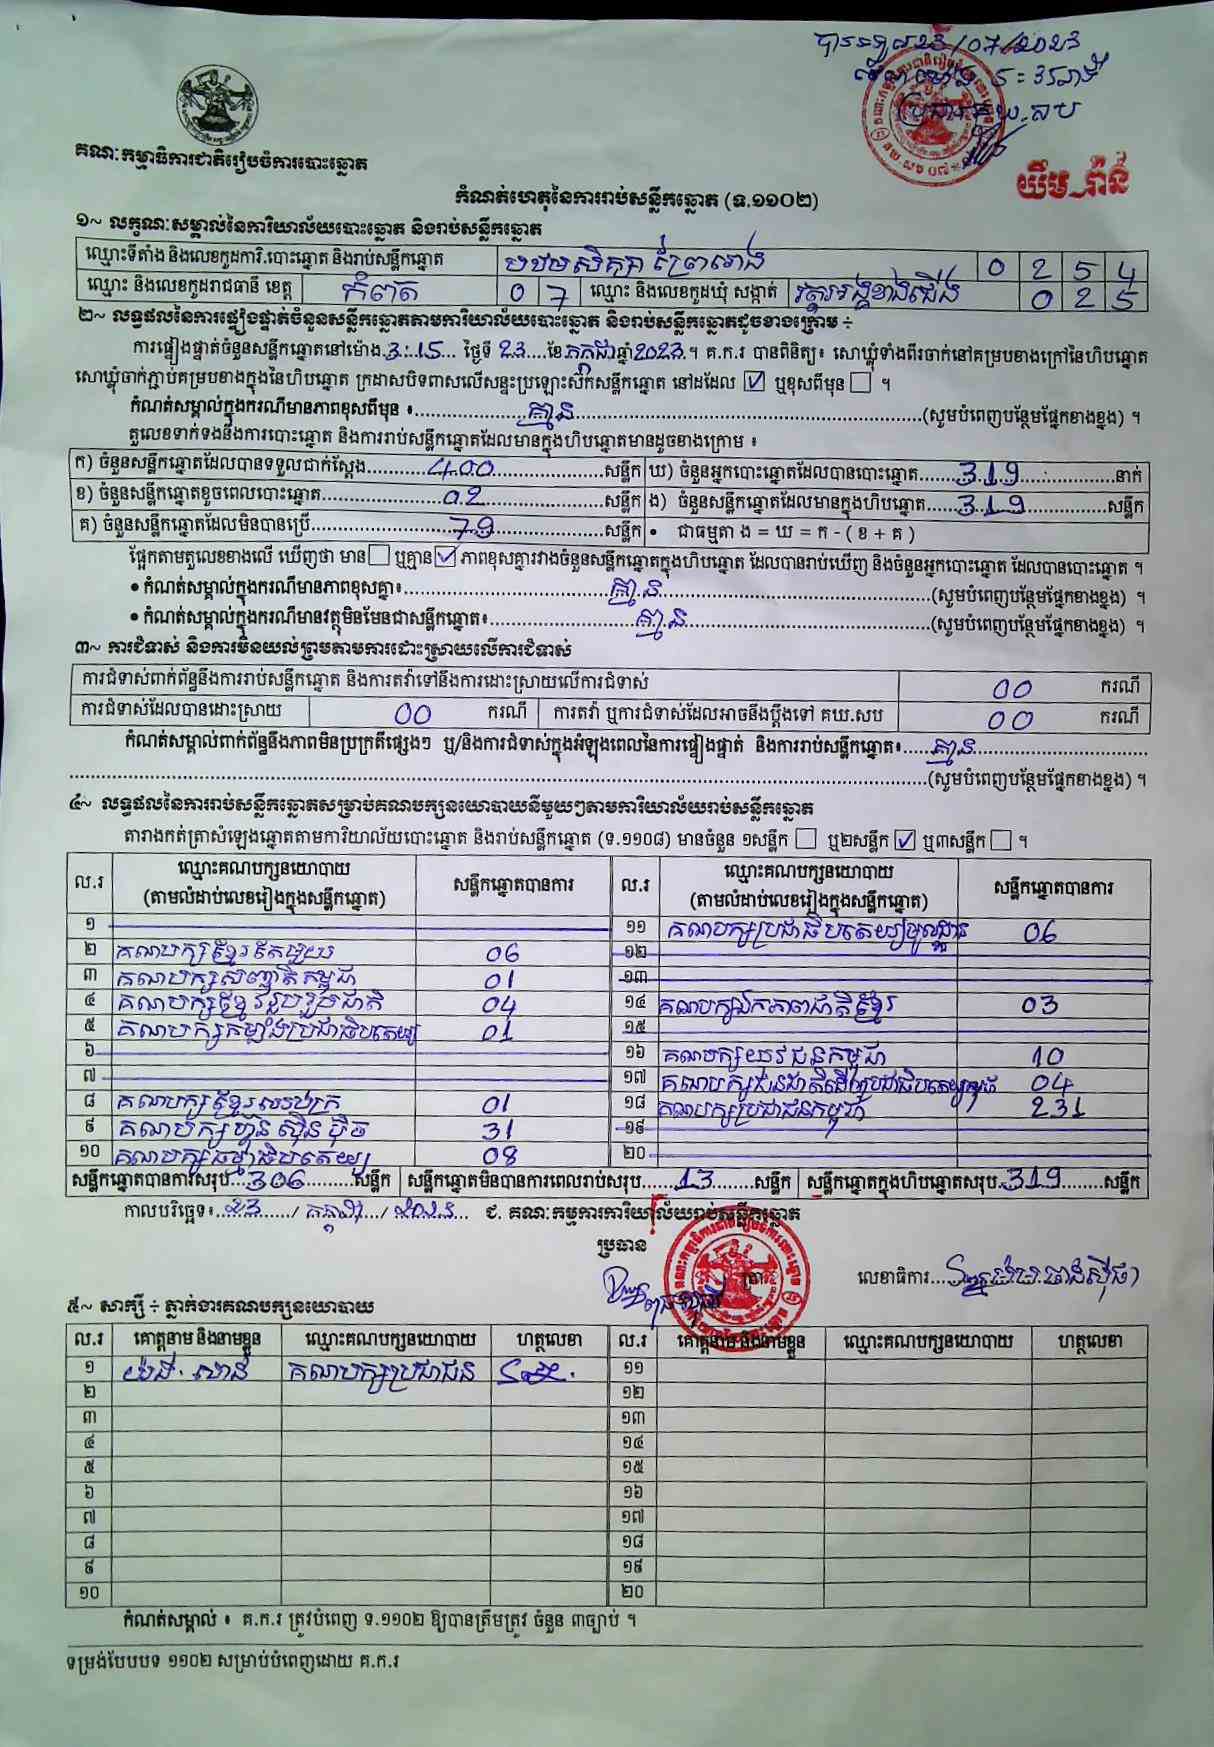 បានទទួល 23/07/2023
គណៈកម្មាធិការជាតិរៀបចំការបោះឆ្នោត
យឹម_រ៉ាន់
កំណត់ហេតុនៃការរាប់សន្លឹកឆ្នោត (ទ.១១០២)
១~ លក្ខណៈសម្គាល់នៃការិយាល័យបោះឆ្នោត និងរាប់សន្លឹកឆ្នោត
ឈ្មោះទីតាំង និងលេខកូដការិ.បោះឆ្នោត និងរាប់សន្លឹកឆ្នោត បឋមសិក្សា 0 2 5 4
ឈ្មោះ និងលេខកូដរាជធានី ខេត្ត កំពត 0 7 ឈ្មោះ និងលេខកូដឃុំ សង្កាត់ 0 2 5
២~ លទ្ធផលនៃការផ្ទៀងផ្ទាត់ចំនួនសន្លឹកឆ្នោតតាមការិយាល័យបោះឆ្នោត និងរាប់សន្លឹកឆ្នោតដូចខាងក្រោម ÷
ការផ្ទៀងផ្ទាត់ចំនួនសន្លឹកឆ្នោតនៅម៉ោង 3:15 ថ្ងៃទី 23 ខែ កក្កដា ឆ្នាំ 2023 ។ គ.ក.រ បានពិនិត្យ៖ សោឃ្លុំទាំងពីរចាក់នៅគម្របខាងក្រៅនៃហិបឆ្នោត
សោឃ្លុំចាក់ភ្ជាប់គម្របខាងក្នុងនៃហិបឆ្នោត ក្រដាសបិទពាសលើសន្ទះប្រឡោះស៊កសន្លឹកឆ្នោត នៅដដែល ☑ ឬខុសពីមុន ☐ ។
កំណត់សម្គាល់ក្នុងករណីមានភាពខុសពីមុន ៖ គ្មាន (សូមបំពេញបន្ថែមផ្នែកខាងខ្នង) ។
តួលេខទាក់ទងនឹងការបោះឆ្នោត និងការរាប់សន្លឹកឆ្នោតដែលមានក្នុងហិបឆ្នោតមានដូចខាងក្រោម ៖
ក) ចំនួនសន្លឹកឆ្នោតដែលបានទទួលជាក់ស្តែង 400 សន្លឹក ឃ) ចំនួនអ្នកបោះឆ្នោតដែលបានបោះឆ្នោត 319 នាក់
ខ) ចំនួនសន្លឹកឆ្នោតខូចពេលបោះឆ្នោត 02 សន្លឹក ង) ចំនួនសន្លឹកឆ្នោតដែលមានក្នុងហិបឆ្នោត 319 សន្លឹក
គ) ចំនួនសន្លឹកឆ្នោតដែលមិនបានប្រើ 79 សន្លឹក • ជាធម្មតា ង = ឃ = ក - ( ខ + គ )
ផ្អែកតាមតួលេខខាងលើ ឃើញថា មាន ☐ ឬគ្មាន ☑ ភាពខុសគ្នារវាងចំនួនសន្លឹកឆ្នោតក្នុងហិបឆ្នោត ដែលបានរាប់ឃើញ និងចំនួនអ្នកបោះឆ្នោត ដែលបានបោះឆ្នោត ។
• កំណត់សម្គាល់ក្នុងករណីមានភាពខុសគ្នា៖ គ្មាន (សូមបំពេញបន្ថែមផ្នែកខាងខ្នង) ។
• កំណត់សម្គាល់ក្នុងករណីមានវត្ថុមិនមែនជាសន្លឹកឆ្នោត៖ គ្មាន (សូមបំពេញបន្ថែមផ្នែកខាងខ្នង) ។
៣~ ការជំទាស់ និងការមិនយល់ព្រមតាមការដោះស្រាយលើការជំទាស់
ការជំទាស់ពាក់ព័ន្ធនឹងការរាប់សន្លឹកឆ្នោត និងការតវ៉ាទៅនឹងការដោះស្រាយលើការជំទាស់ 00 ករណី
ការជំទាស់ដែលបានដោះស្រាយ 00 ករណី ការតវ៉ា ឬការជំទាស់ដែលអាចនឹងប្តឹងទៅ គឃ.សប 00 ករណី
កំណត់សម្គាល់ពាក់ព័ន្ធនឹងភាពមិនប្រក្រតីផ្សេងៗ ឬ/និងការជំទាស់ក្នុងអំឡុងពេលនៃការផ្ទៀងផ្ទាត់ និងការរាប់សន្លឹកឆ្នោត៖ គ្មាន
(សូមបំពេញបន្ថែមផ្នែកខាងខ្នង) ។
៤~ លទ្ធផលនៃការរាប់សន្លឹកឆ្នោតសម្រាប់គណបក្សនយោបាយនីមួយៗតាមការិយាល័យរាប់សន្លឹកឆ្នោត
តារាងកត់ត្រាសំឡេងឆ្នោតតាមការិយាល័យបោះឆ្នោត និងរាប់សន្លឹកឆ្នោត (ទ.១១០៨) មានចំនួន ១សន្លឹក ☐ ឬ២សន្លឹក ☑ ឬ៣សន្លឹក ☐ ។
ល.រ ឈ្មោះគណបក្សនយោបាយ (តាមលំដាប់លេខរៀងក្នុងសន្លឹកឆ្នោត) សន្លឹកឆ្នោតបានការ ល.រ ឈ្មោះគណបក្សនយោបាយ (តាមលំដាប់លេខរៀងក្នុងសន្លឹកឆ្នោត) សន្លឹកឆ្នោតបានការ
១ ១១ គណបក្សប្រជាធិបតេយ្យមូលដ្ឋាន 06
២ គណបក្សខ្មែរតែមួយ 06 ១២
៣ គណបក្សសញ្ជាតិកម្ពុជា 01 ១៣
៤ គណបក្សខ្មែររួបរួមជាតិ 04 ១៤ គណបក្សឯកភាពជាតិខ្មែរ 03
៥ គណបក្សកម្លាំងប្រជាធិបតេយ្យ 01 ១៥
៦ ១៦ គណបក្សយុវជនកម្ពុជា 10
៧ ១៧ គណបក្សជនជាតិដើមប្រជាធិបតេយ្យកម្ពុជា 04
៨ គណបក្សខ្មែរអភិរក្ស 01 ១៨ គណបក្សប្រជាជនកម្ពុជា 231
៩ គណបក្សហ៊្វុនស៊ិនប៉ិច 31 ១៩
១០ គណបក្សធម្មាធិបតេយ្យ 08 ២០
សន្លឹកឆ្នោតបានការសរុប 306 សន្លឹក សន្លឹកឆ្នោតមិនបានការពេលរាប់សរុប 13 សន្លឹក សន្លឹកឆ្នោតក្នុងហិបឆ្នោតសរុប 319 សន្លឹក
កាលបរិច្ឆេទ៖ ២៣ / កក្កដា / ២០២៣ ជ. គណៈកម្មការការិយាល័យរាប់សន្លឹកឆ្នោត
ប្រធាន
លេខាធិការ
៥~ សាក្សី ÷ ភ្នាក់ងារគណបក្សនយោបាយ
ល.រ គោត្តនាម និងនាមខ្លួន ឈ្មោះគណបក្សនយោបាយ ហត្ថលេខា ល.រ គោត្តនាម និងនាមខ្លួន ឈ្មោះគណបក្សនយោបាយ ហត្ថលេខា
១ គណបក្សប្រជាជន ១១
២ ១២
៣ ១៣
៤ ១៤
៥ ១៥
៦ ១៦
៧ ១៧
៨ ១៨
៩ ១៩
១០ ២០
កំណត់សម្គាល់ ៖ គ.ក.រ ត្រូវបំពេញ ទ.១១០២ ឱ្យបានត្រឹមត្រូវ ចំនួន ៣ច្បាប់ ។
ទម្រង់បែបបទ ១១០២ សម្រាប់បំពេញដោយ គ.ក.រ